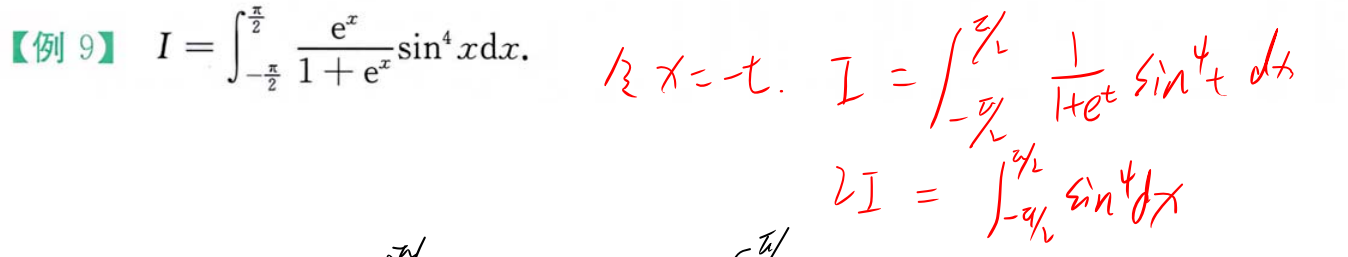 【例 9】 I = ∫_{-π/2}^{π/2} e^x/(1+e^x) sin⁴ x dx.
令 x=-t. I = ∫_{-π/2}^{π/2} 1/(1+e^t) sin⁴t dx
2I = ∫_{-π/2}^{π/2} sin⁴dx